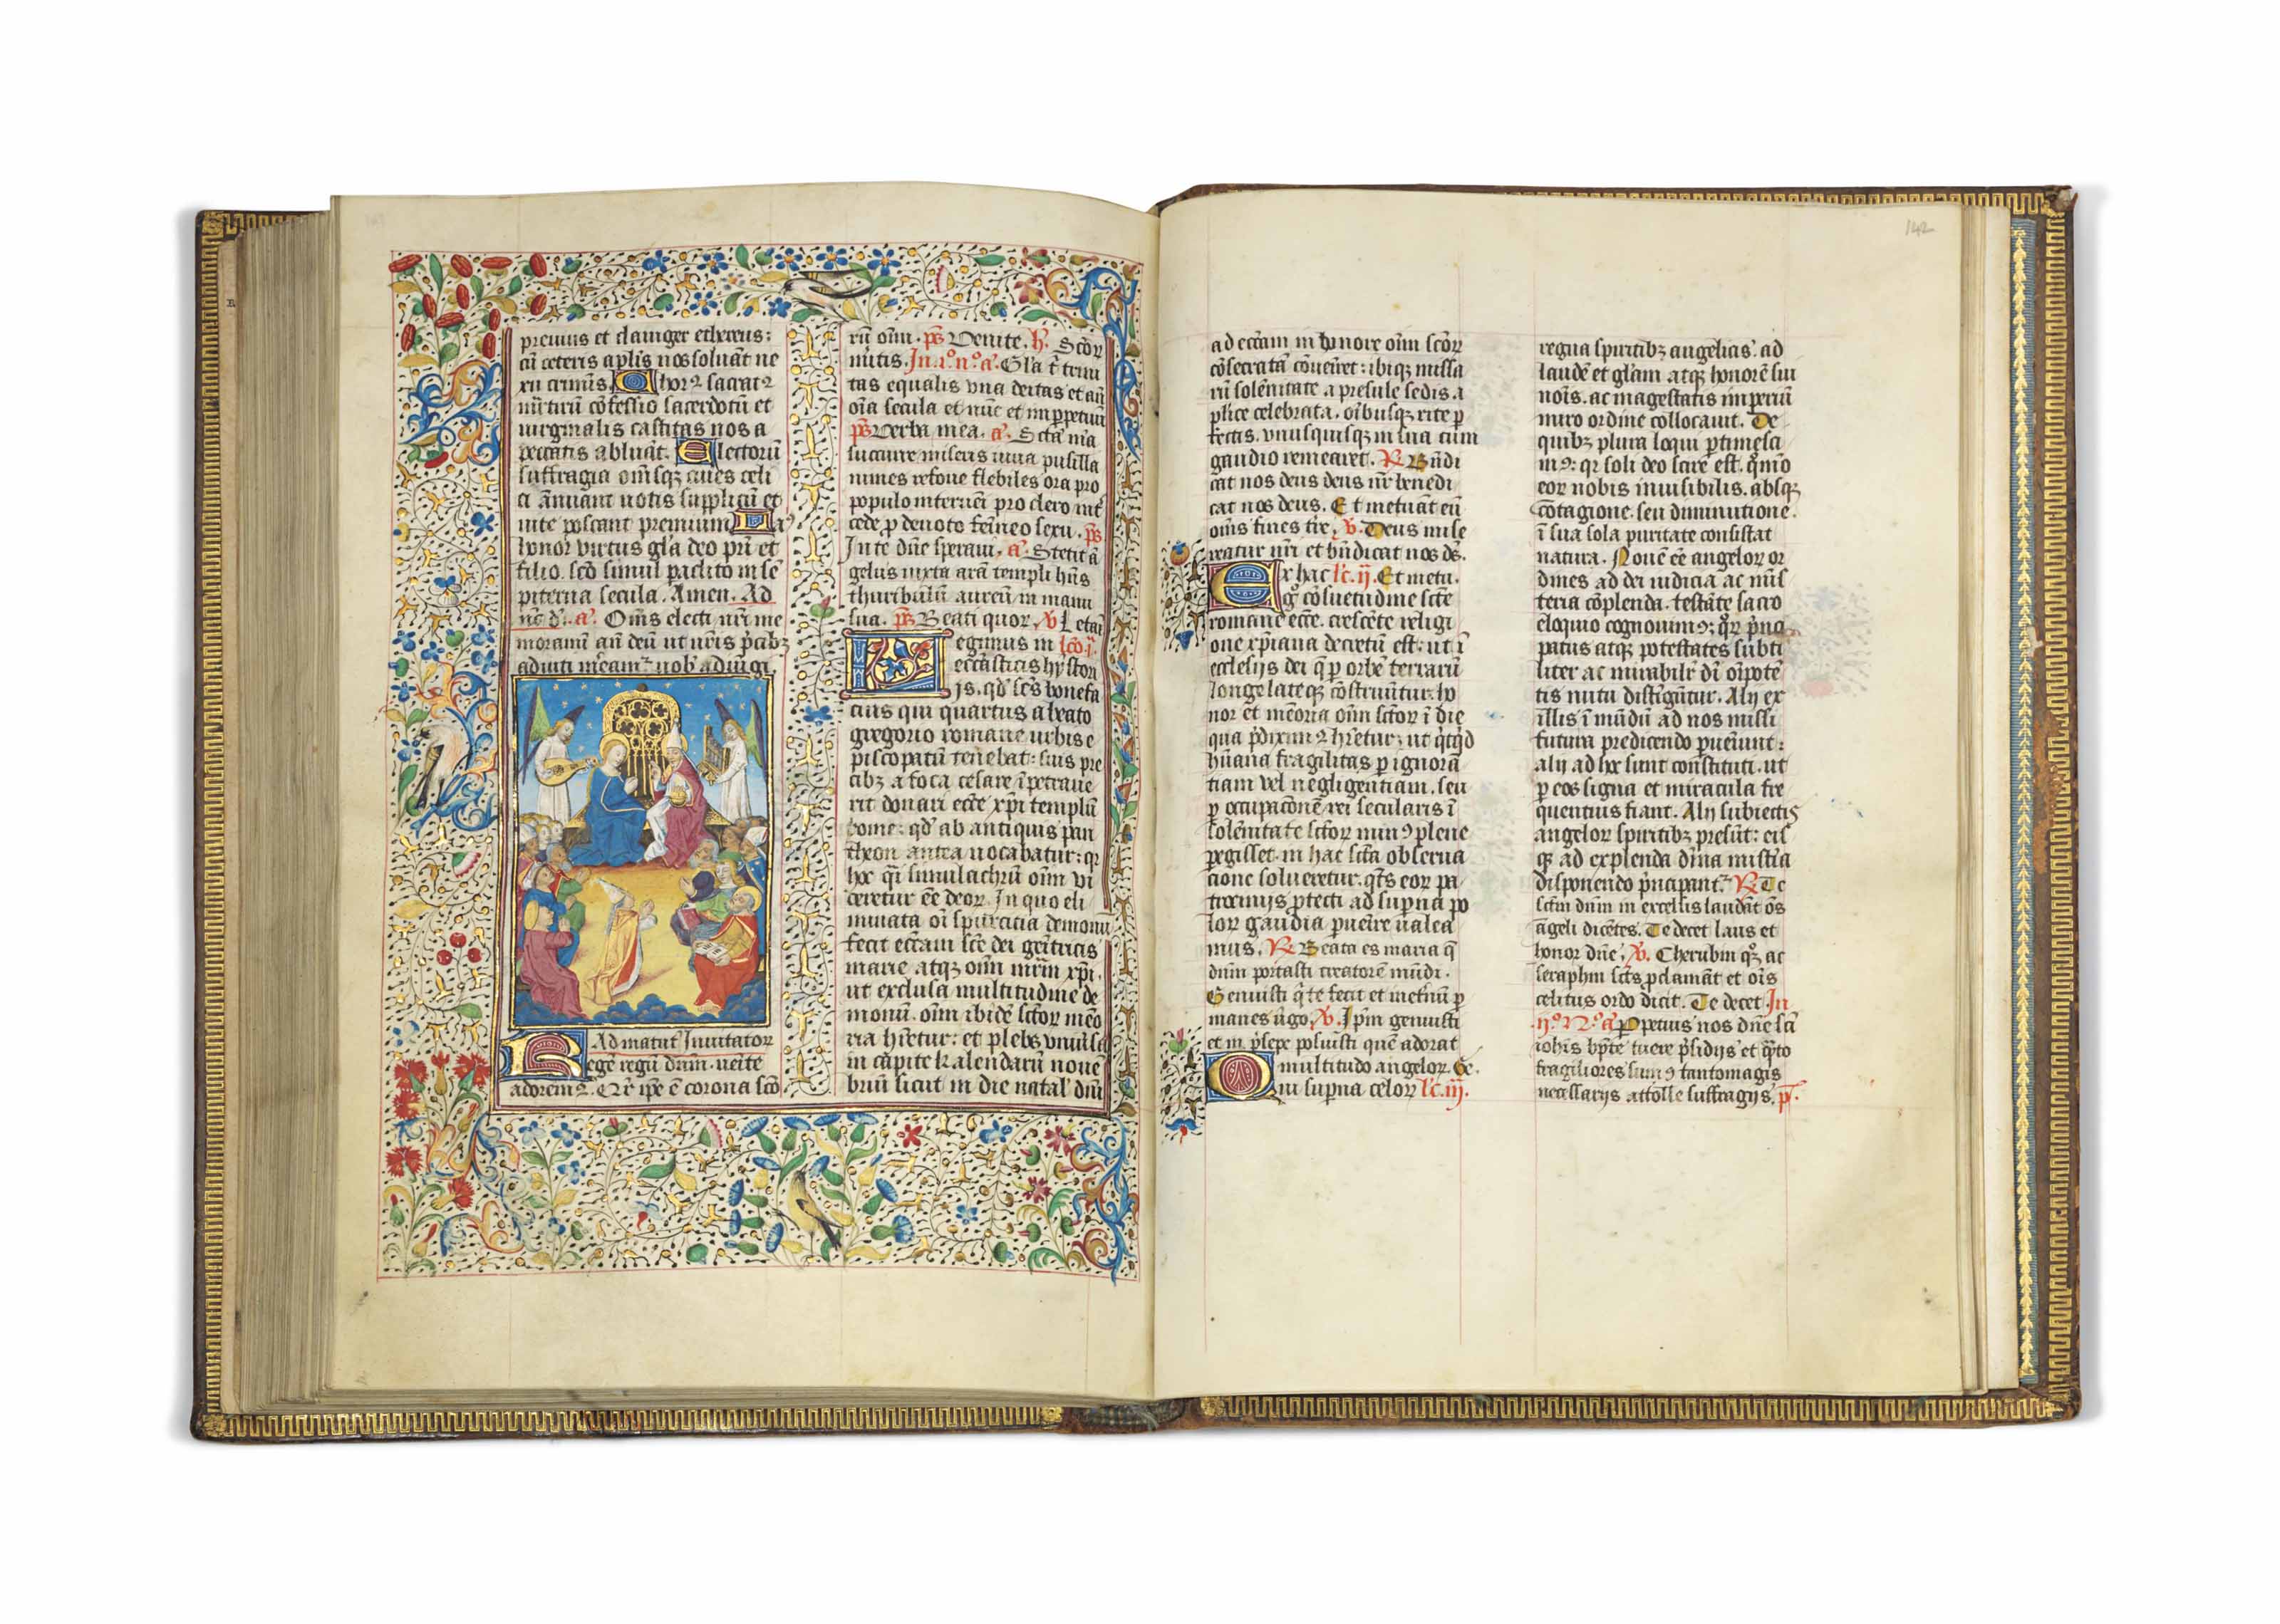 preuius et clauiger ethereus:
cū ceteris aplīs nos soluāt ne
xu criminis. Chorꝰ sacratꝰ
martirū cōfessio sacerdotū et
uirginalis castitas nos a
peccatis abluāt. Electorū
suffragia omīsqꝫ ciues celi
ci ānuant uotis supplicū et
uite poscant premium. Laꝰ
honor virtus gl'a deo pr̄i et
filio. scō simul paclito in sē
piterna secula. Amen. Ad
a. Om̄s electi
moramī an̄ deū ut nr̄is p̄cibꝫ
adiuti
Ad matut' Inuitator
Regē regū dn̄m. uenite
adoremꝰ. Qr̄ ipe ē corona sc̄o
rū om̄i. ps̄ Venite. h. Scōꝝ
In. a. Gl'a t' trini
tas equalis vna deitas et an̄
om̄a secula et nūc et in perpetuū
ps̄ Verba mea. a. Sctā m̄a
succurre miseris iuua pusilla
nimes refoue flebiles ora pro
populo interueni pro clero int'
cede ꝑ deuoto femineo sexu. ps̄
In te dn̄e speraui. a. Stetit ā
gelus iuxta arā templi hn̄s
thuribulū aureū in manu
sua. ps̄ Beati quoꝝ. v̄ Letāi
Legimus in lcō i.
eccl'asticis hystori
js. qd' sc̄s bonefa
cius qui quartus a beato
gregorio romane urbis e
piscopatū tenebat: suis pre
cibꝫ a foca cesare īpetraue
rit donari eccle xp̄i templū
rome: qd' ab antiquis pan
theon antea uocabatur: qr
hoc q̄i simulachrū om̄i vi
deretur eē deoꝝ. In quo eli
minata oī spurcitia demonū
fecit eccl'am sc̄e dei genitricis
marie atqꝫ om̄i mr̄m xp̄i.
ut exclusa multitudine de
monū. om̄i ibidē sc̄toꝝ memo
ria hr̄etur: et plebs vniūsa
in capite kalendarū noue
briū sicut in die natal' dn̄i
142
ad eccl'am in honore om̄i sc̄oꝝ
cōsecratā cōueniret: ibiqꝫ missa
rū solēnitate a presule sedis a
p̄lice celebrata. oībusqꝫ rite ꝑ
fectis. vnusquisqꝫ in sua cum
gaudio remearet. R̄ Bn̄di
cat nos deus deus nr̄ benedi
cat nos deus. Et metuāt eū
om̄s fines tr̄e. v̄. Deus mise
reatur nr̄i et bn̄dicat nos ds̄.
Ex hac lc. ij. Et metu.
g̊ cōsuetudine sc̄te
romane eccl'e. crescēte religi
one xp̄iana decretū est: ut ī
ecclesijs dei q̄ ꝑ orbē terrarū
longe lateqꝫ cōstruūtur. ho
nor et memoria om̄i sc̄toꝝ ī die
qua p̄diximꝰ hr̄etur: ut q̄cq̄d
hūana fragilitas ꝑ ignorā
tiam vel negligentiam. seu
ꝑ occupacōnē rei secularis ī
solēnitate sc̄toꝝ minꝰ plene
ꝑegisset. in hac sc̄ta obserua
cione solueretur. q̄tꝰ eoꝝ pa
trocinijs ꝓtecti ad supna po
loꝝ gaudia puenire ualea
mus. R̄ Beata es maria q̄
dn̄m portasti creatorē mūdi.
Genuisti q̄ te fecit et ineternū ꝑ
manes u̓go. v̄. Ip̄m genuisti
et in p̄sepe posuisti quē adorat
multitudo angeloꝝ. Ge.
Qui supna celoꝝ lc. iij.
regna spiritibꝫ angelicis. ad
laudē et gl'am atqꝫ honorē sui
nois. ac magestatis imperiū
miro ordine collocauit. De
quibꝫ plura loqui ꝑtimesci
mꝰ: qr soli deo scire est. quō
eoꝝ nobis inuisibilis. absqꝫ
cōtagione. seu diminutione.
ī sua sola puritate consistat
natura. Nouē eē angeloꝝ or
dines ad dei iudicia ac minis
teria cōplenda. testāte sacro
eloquio cognouimꝰ: quoꝝ p̄nci
patus atqꝫ potestates subti
liter ac mirabilr̄ di oīpotē
tis nutu distīguntur. Alij ex
illis ī mūdū ad nos missi
futura predicendo pueniunt:
alij ad hoc sunt constituti. ut
ꝑ eos signa et miracula fre
quentius fiant. Alij subiectis
angeloꝝ spiritibꝫ presūt: eis
qꝫ ad explenda diuina mistīa
disponendo p̄ncipant'. R̄ Te
sc̄tm dn̄m in excelsis laudāt oēs
āgeli dicētes. Te decet laus et
honor dn̄e. v̄. Cherubin qꝫ ac
seraphin sc̄tꝰ ꝓclamāt et oīs
celitus ordo dicit. Te decet. In
ij.° N.° a. Ppetuis nos dn̄e sc̄i
iohīs bpt̄e tuere p̄sidijs et q̄nto
fragiliores sumꝰ tantomagis
necessarijs attolle suffragijs. p̄.